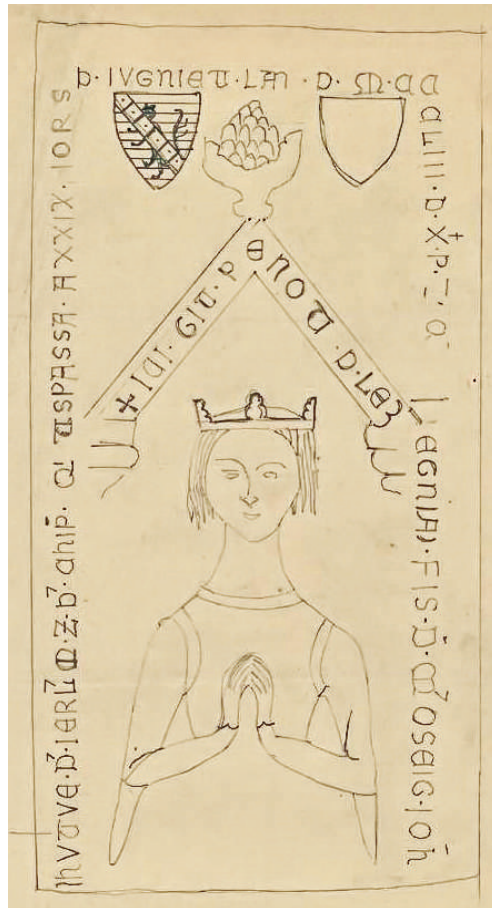 ✠ ICI · GIT · PENOT · D · LEZ
EGNIAN · FIS · D · MOSEIG · IOh
D · IERLM · Z · D · ChIP · Q' TSPASSA · A XXIX · IORS
D · IVGNIET · LAN · D · M · CC
CLIII · D · XP ·